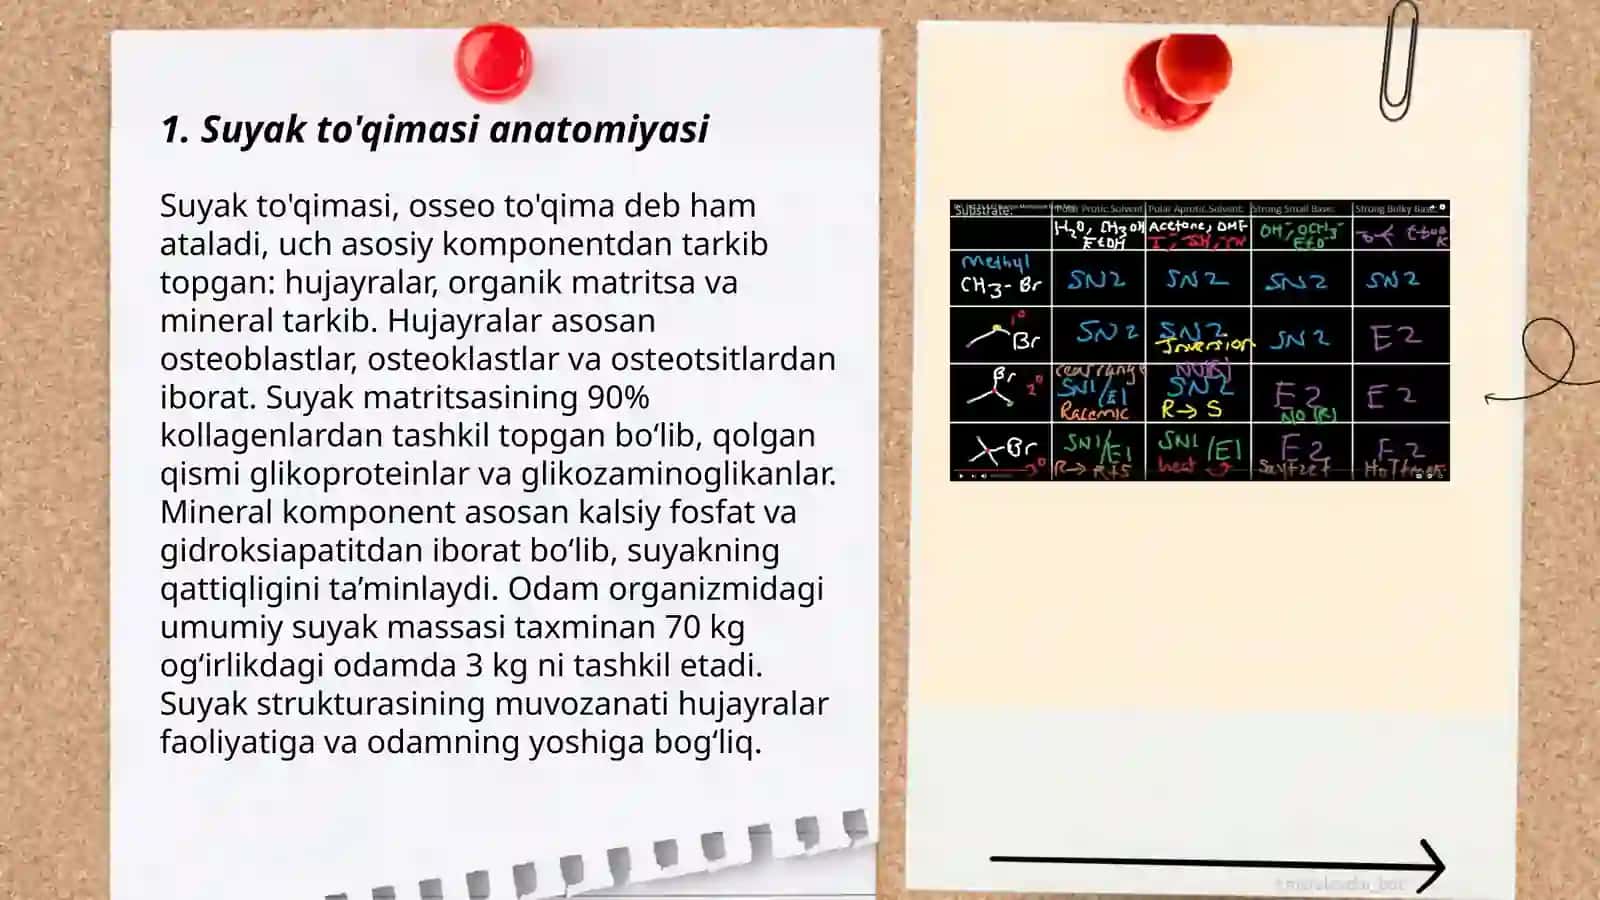 1. Suyak to'qimasi anatomiyasi
Suyak to'qimasi, osseo to'qima deb ham
ataladi, uch asosiy komponentdan tarkib
topgan: hujayralar, organik matritsa va
mineral tarkib. Hujayralar asosan
osteoblastlar, osteoklastlar va osteotsitlardan
iborat. Suyak matritsasining 90%
kollagenlardan tashkil topgan bo‘lib, qolgan
qismi glikoproteinlar va glikozaminoglikanlar.
Mineral komponent asosan kalsiy fosfat va
gidroksiapatitdan iborat bo‘lib, suyakning
qattiqligini ta’minlaydi. Odam organizmidagi
umumiy suyak massasi taxminan 70 kg
og‘irlikdagi odamda 3 kg ni tashkil etadi.
Suyak strukturasining muvozanati hujayralar
faoliyatiga va odamning yoshiga bog‘liq.
Substrate: Polar Protic Solvent Polar Aprotic Solvent: Strong Small Base: Strong Bulky Base:
H2O, CH3OH Acetone, DMF OH-, OCH3-
EtOH I-, SH-, CN EtO-
Methyl
CH3-Br SN2 SN2 SN2 SN2
1° Br SN2 SN2 SN2 E2
Inversion
Br 2° rearrange
SN1/E1 SN2 E2 E2
Racemic R→S No (R)
Br 3° SN1/E1 SN1/E1 E2 E2
R→R+S heat Saytzef